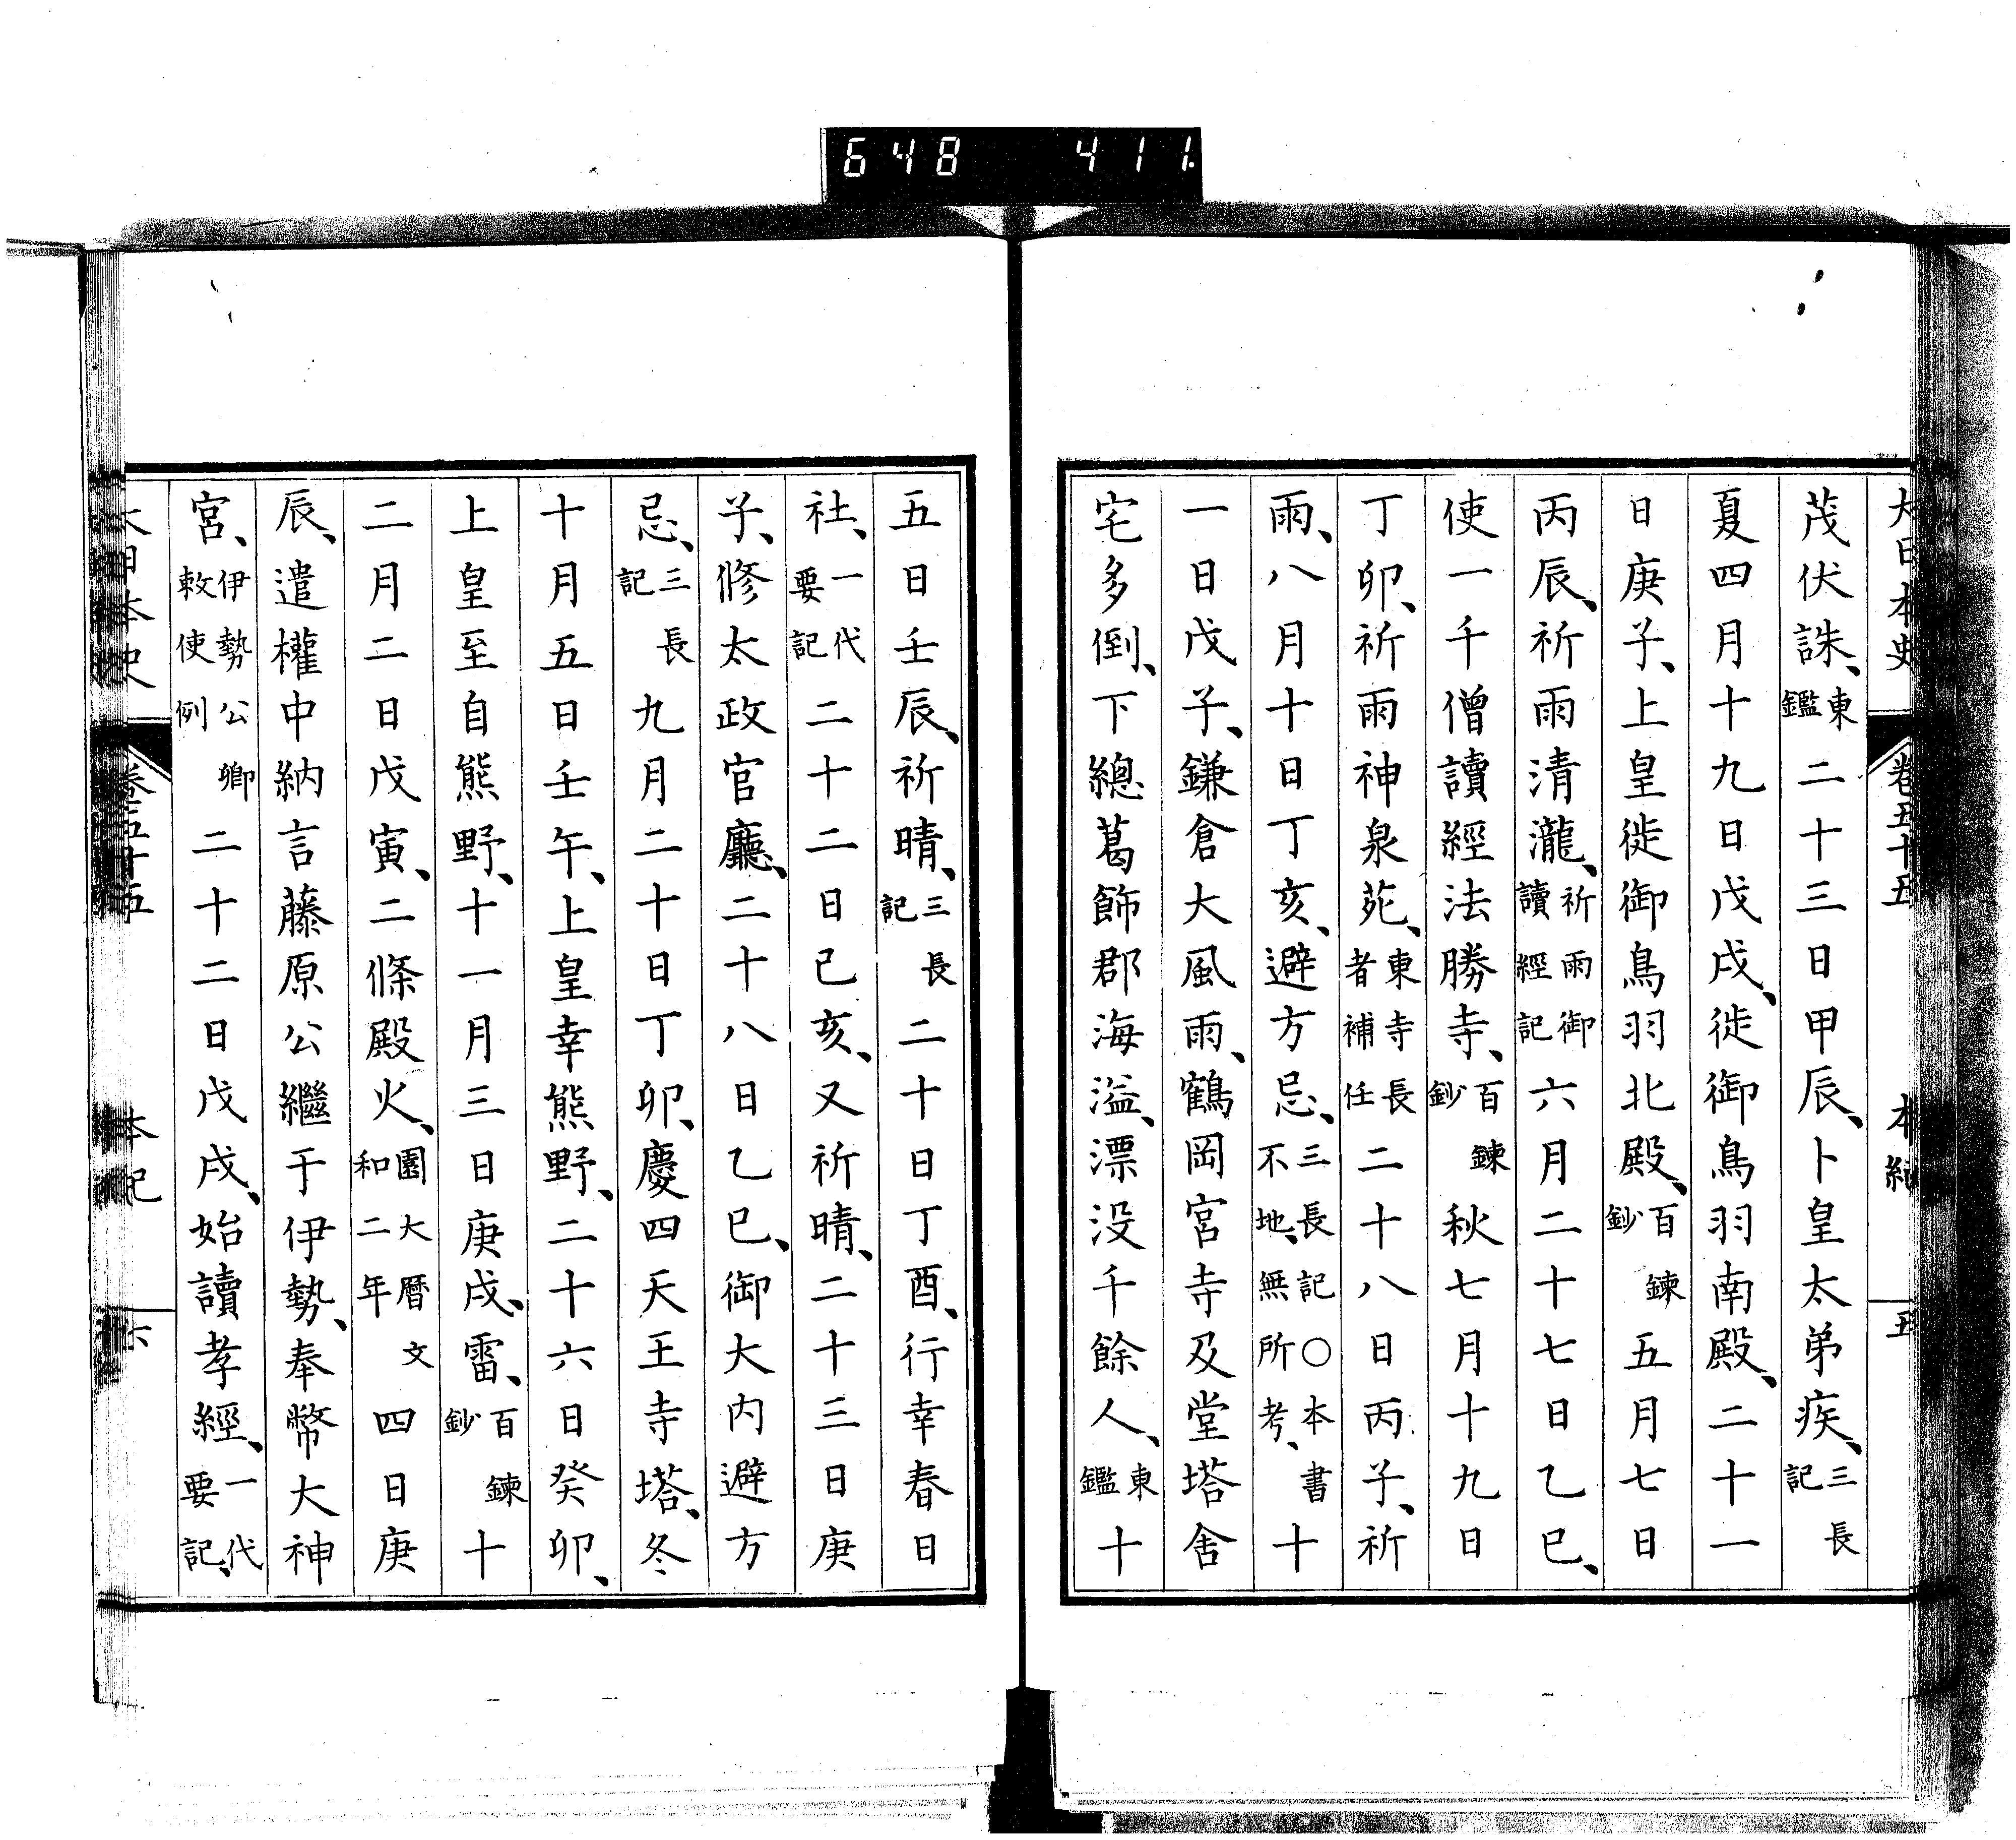 648 411
大日本史 卷五十五 本紀 五
茂伏誅、東鑑二十三日甲辰、卜皇太弟疾、三長記
夏四月十九日戊戌、徙御鳥羽南殿、二十一
日庚子、上皇徙御鳥羽北殿、百鍊鈔五月七日
丙辰、祈雨清瀧、祈雨御讀經記六月二十七日乙巳、
使一千僧讀經法勝寺、百鍊鈔秋七月十九日
丁卯、祈雨神泉苑、東寺長者補任二十八日丙子、祈
雨、八月十日丁亥、避方忌、三長記〇本書不地、無所考、十
一日戊子、鎌倉大風雨、鶴岡宮寺及堂塔舍
宅多倒、下總葛飾郡海溢、漂没千餘人、東鑑十
五日壬辰、祈晴、三長記二十日丁酉、行幸春日
社、一代要記二十二日己亥、又祈晴、二十三日庚
子、修太政官廳、二十八日乙巳、御大内避方
忌、三長記九月二十日丁卯、慶四天王寺塔、冬
十月五日壬午、上皇幸熊野、二十六日癸卯、
上皇至自熊野、十一月三日庚戌、雷、百鍊鈔十
二月二日戊寅、二條殿火、園大暦文和二年四日庚
辰、遣權中納言藤原公繼于伊勢、奉幣大神
宮、伊勢公卿敕使例二十二日戊戌、始讀孝經、一代要記、
大日本史 卷五十五 本紀 六